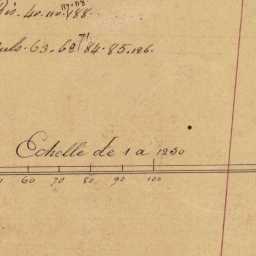 117.118
40.110. 188.
71
63.68 84.85.126.
Echelle de 1 a 1250
60 70 80 90 100